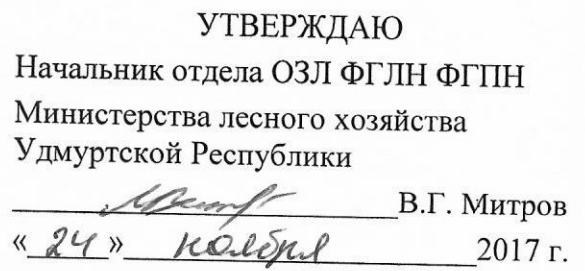 УТВЕРЖДАЮ
Начальник отдела ОЗЛ ФГЛН ФГПН
Министерства лесного хозяйства
Удмуртской Республики
В.Г. Митров
« 24 » ноября 2017 г.